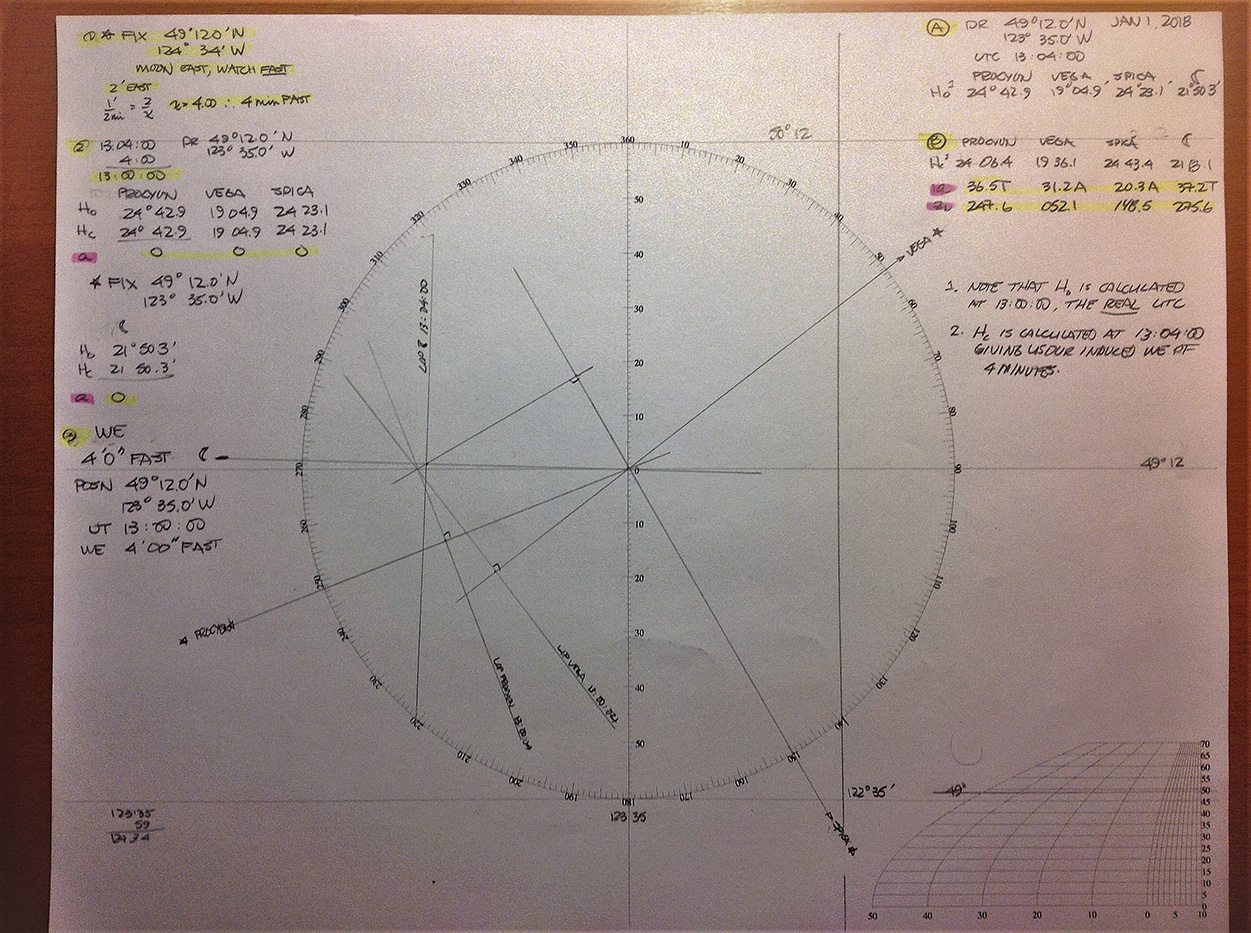 ① ☆ FIX 49°12.0'N
124° 34' W
MOON EAST, WATCH FAST
2' EAST
1'/2mi = 2/x x = 4.00 ∴ 4 min FAST
② 13:04:00 DR 49°12.0'N
4:00 123° 35.0' W
13:00:00
PROCYON VEGA SPICA
Ho 24°42.9 19 04.9 24 23.1
Hc 24° 42.9 19 04.9 24 23.1
a 0 0 0
☆ FIX 49° 12.0'N
123° 35.0'W
☾
Ho 21°50.3'
Hc 21 50.3'
a 0
③ WE
4'0" FAST ☾
POSN 49°12.0'N
123° 35.0'W
UT 13:00:00
WE 4'00" FAST
A DR 49°12.0'N JAN 1, 2018
123° 35.0'W
UTC 13:04:00
PROCYON VEGA SPICA ☾
Ho² 24°42.9 19°04.9' 24°23.1' 21°50.3'
B PROCYON VEGA SPICA ☾
Hc² 24 06.4 19 36.1 24 43.4
a 36.5T 31.2A 20.3A 37.2T
Zn 247.6 052.1 148.5 275.6
1. NOTE THAT Ho IS CALCULATED
AT 13:00:00, THE REAL UTC
2. Hc IS CALCULATED AT 13:04:00
GIVING US OUR INDUCED WE OF
4 MINUTES.
50°12
VEGA ☆
49°12
☆ PROCYON
LOP PROCYON
LOP VEGA
SPICA ☆
122°35'
49°
123 35
123 35
59
124 34
360 10 20 30 40 50 60 70 80 90 100 110 120 130 140 150 160 170 180 190 200 210 220 230 240 250 260 270 280 290 300 310 320 330 340 350
50
40
30
20
10
0
10
20
30
40
50
70
65
60
55
50
45
40
35
30
25
20
15
10
5
0
50 40 30 20 10 0 5 10